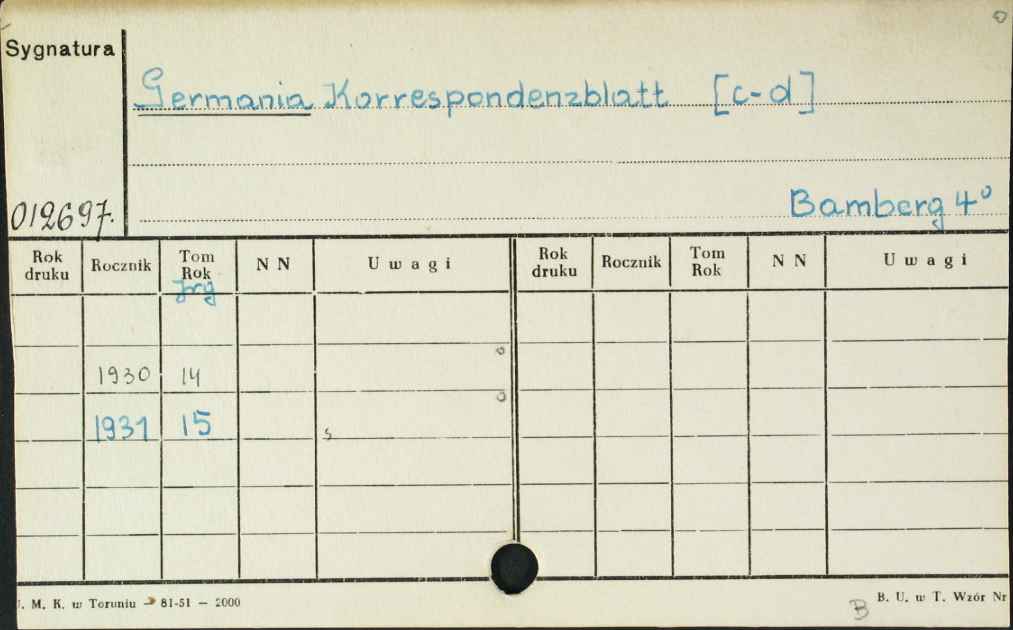 Sygnatura
Germania Korrespondenzblatt [c-d]
Bamberg 4°
012697.
Rok druku Rocznik Tom Rok N N Uwagi Rok druku Rocznik Tom Rok N N Uwagi
Jrg
1930 14
1931 15
s
. M. K. w Toruniu 81-51 — 2000
B
B. U. w T. Wzór Nr